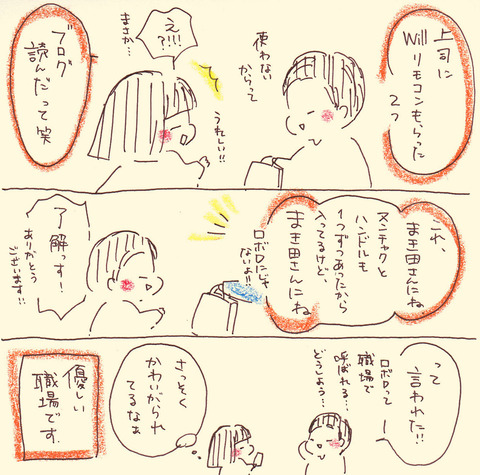 上司に
Willリモコンもらった
2つ
使わない
からって
え?!!!
まさか…
うれしい!!
ブログ
読んだって笑
これ、
まき田さんにね
ヌンチャクと
ハンドルも
1つずつあったから
入ってるけど、
まき田さんにね
ロボロにじゃ
ないよ!!
了解っす!
ありがとう
ございます!!
って
言われた!!
ロボロって
職場で
呼ばれる…
どうよう…
さっそく
かわいがられ
てるなぁ
優しい
職場です.